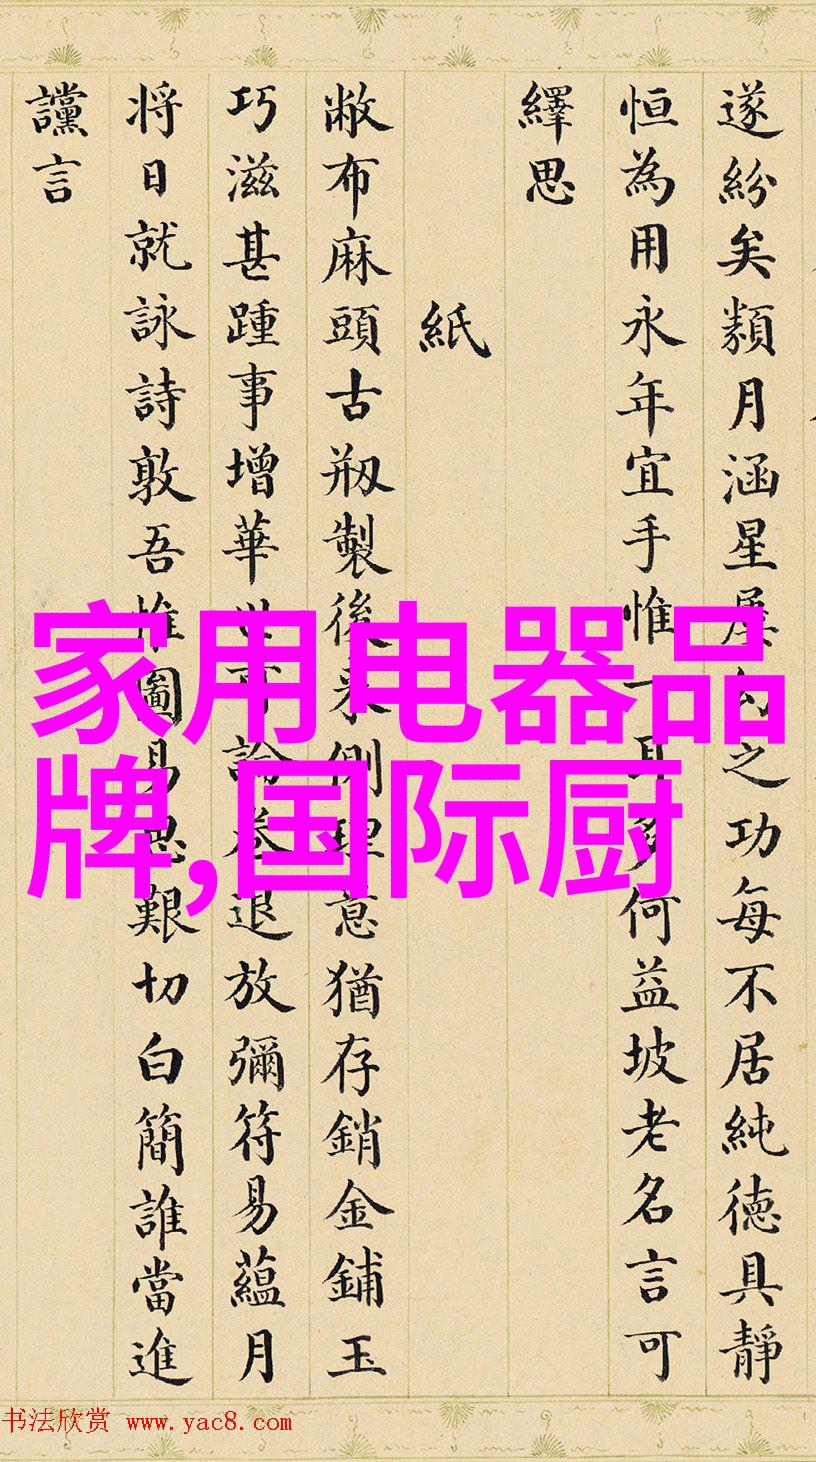 遂紛矣類月涵星屢幻之功每不居純德具靜
恒為用永年宜手惟一耳多何益坡老名言可
繹思
紙
敝布麻頭古剏製後来側理意猶存銷金鋪玉
巧滋甚踵事增華世可論卷退放彌符易蘊月
将日就詠詩敦吾惟圖易思艱切白簡誰當進
讜言
家用电器品
牌,国际厨
书法欣赏 www.yac8.com